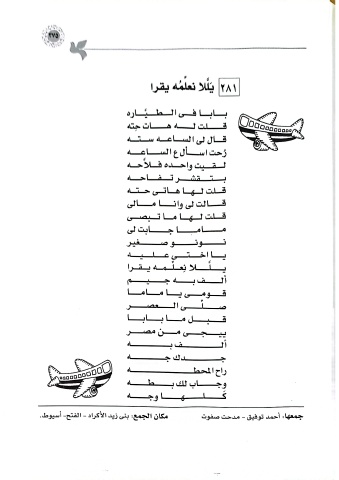 ٢٧٥
٢٨١ يَللا نعلّمُه يقرا
بابا فى الطيّاره
قلت له هات حته
قال لى الساعه سته
رُحت اسأل ع الساعه
لقيت واحده فلاحه
بتقشر تفاحه
قلت لها هاتى حته
قالت لى وانا مالى
قلت لها ما تبصى
ماما جابت لى
نونو صغير
يا اختى عليه
يللا نعلّمه يقرا
ألف به جيم
قومى يا ماما
صلّى العصر
قبل ما بابا
ييجى من مصر
ألف به
جدك جه
راح المحطه
وجاب لك بطه
كلها وجه
جمعها، أحمد توفيق - مدحت صفوت
مكان الجمع: بنى زيد الأكراد - الفتح- أسيوط.